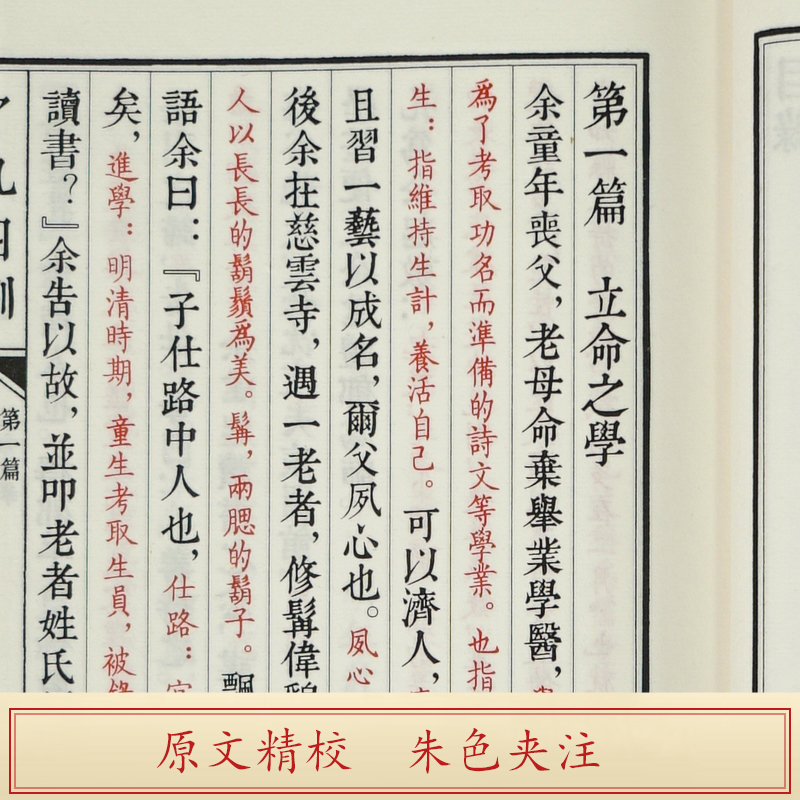 第一篇 立命之學
余童年喪父，老母命棄舉業學醫，
爲了考取功名而準備的詩文等學業。也指
生：指維持生計，養活自己。可以濟人，
且習一藝以成名，爾父夙心也。夙心
後余在慈雲寺，遇一老者，修髯偉貌
人以長長的鬍鬚爲美。髯，兩腮的鬍子。飄
語余曰：『子仕路中人也，仕路：官
矣，進學：明清時期，童生考取生員，被
讀書？』余告以故，並叩老者姓氏
四訓
第一篇
目錄
原文精校 朱色夹注